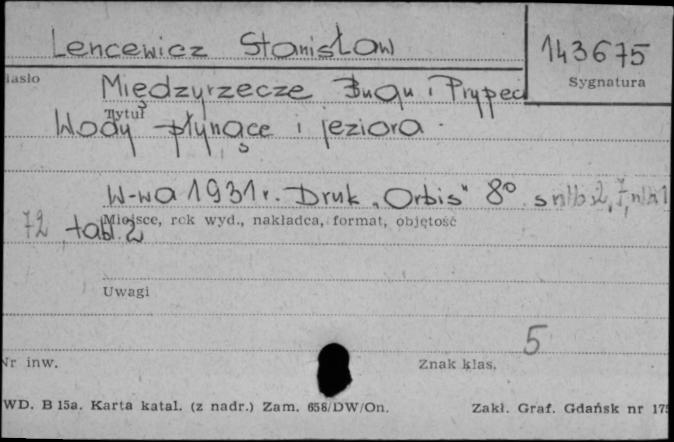 Lencewicz Stanisław
143675
Hasło
Sygnatura
Międzyrzecze Bugu i Prypeci
Tytuł
Wody płynące i jeziora.
W-wa 1931r. Druk „Orbis" 8° s nlb 2, 7, nlb 1
Miejsce, rok wyd., nakładca, format, objętość
72 tabl. 2
Uwagi
5
Nr inw.
Znak klas.
WD. B 15a. Karta katal. (z nadr.) Zam. 658/DW/On.
Zakł. Graf. Gdańsk nr 175